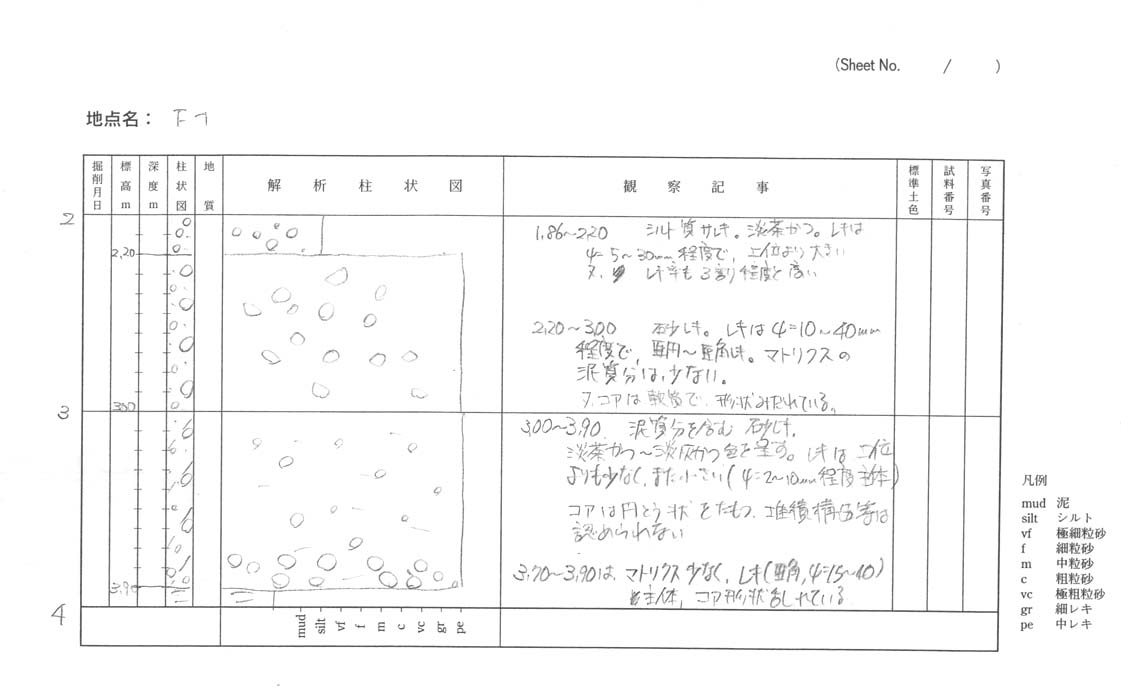 (Sheet No. / )
地点名：
掘削月日 標高m 深度m 柱状図 地質 解析柱状図 観察記事 標準土色 試料番号 写真番号
2
1.86~2.20 シルト質サレキ。淡茶かつ。レキは
φ=5~30mm程度で、上位より大きい
又、レキ率も3割り程度と高い
2.20
2.20~3.00 砂レキ。レキはφ=10~40mm
程度で、亜円~亜角レキ。マトリクスの
泥質分は、少ない。
又、コアは軟質で、形状みだれている。
3.00
3
3.00~3.90 泥質分を含む砂レキ。
淡茶かつ~淡灰かつ色を呈す。レキは上位
よりも少なく、また小さい(φ=2~10mm程度主体)
コアは円とう状をたもつ、堆積構造等は
認められない
3.70~3.90は、マトリクス少なく、レキ(亜角,φ=15~40)
主体、コア形状乱れている
3.90
4
mud silt vf f m c vc gr pe
凡例
mud 泥
silt シルト
vf 極細粒砂
f 細粒砂
m 中粒砂
c 粗粒砂
vc 極粗粒砂
gr 細レキ
pe 中レキ